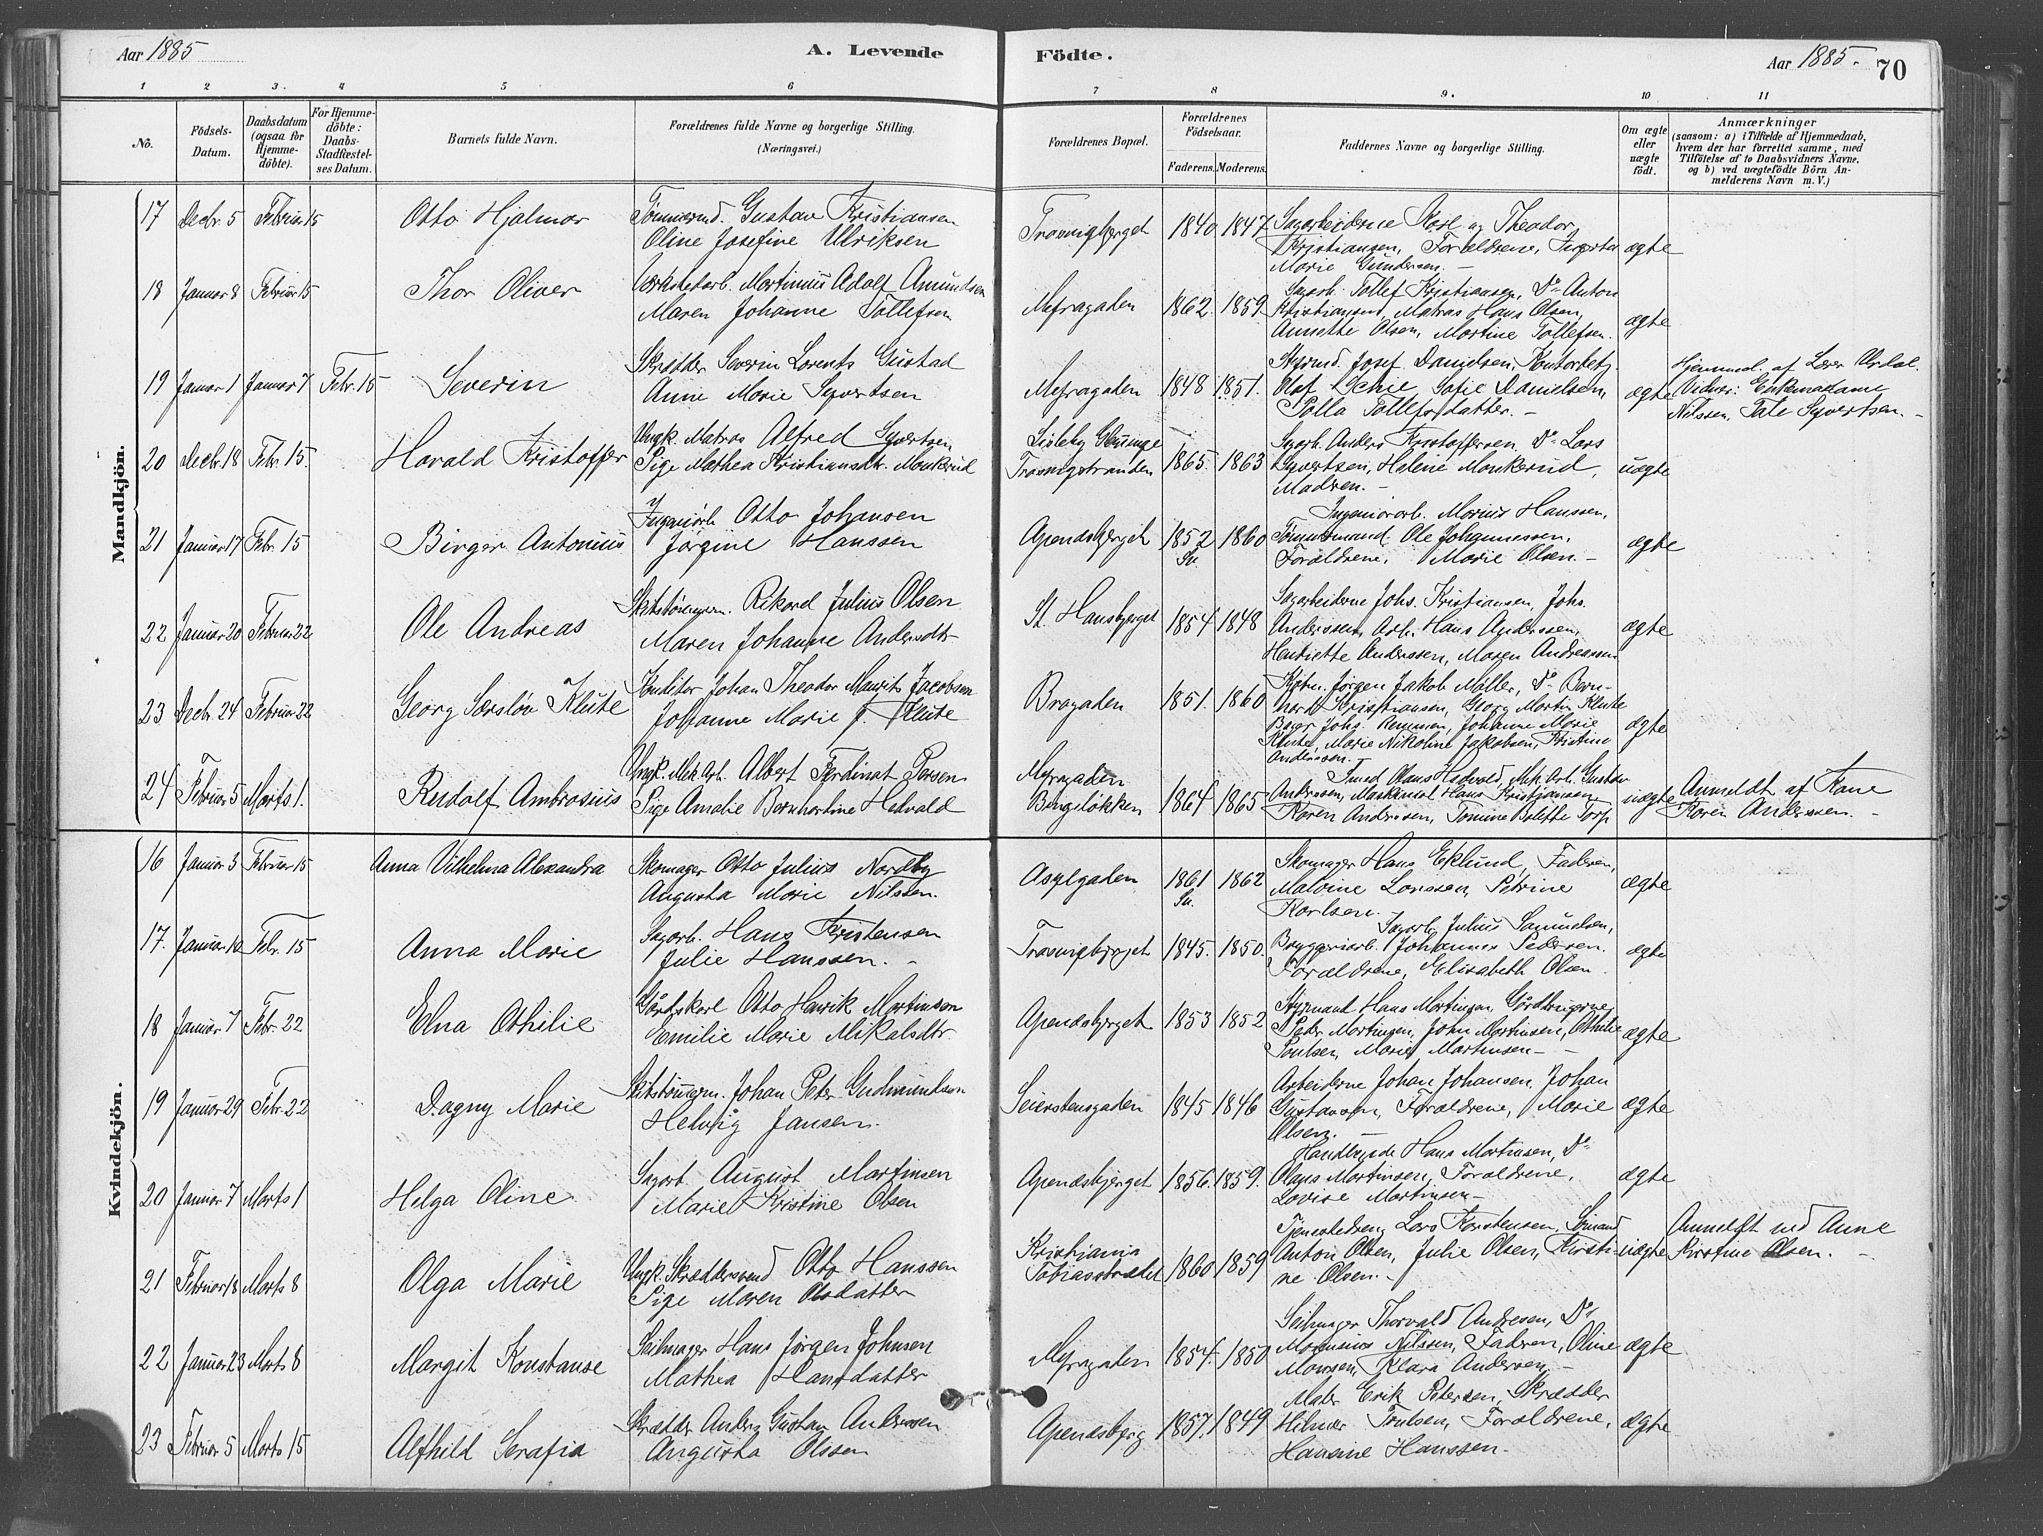 Aar 1885
A. Levende
Födte.
Aar 1885.
70
1 2 3. 4 5 6 7 8 9. 10 11
No.
Födsels-
Datum.
Daabsdatum
(ogsaa for
Hjemme-
döbte).
For Hjemme-
döbte:
Daabs-
Stadfæstel-
ses Datum.
Barnets fulde Navn.
Forældrenes fulde Navne og borgerlige Stilling.
(Næringsvei.)
Forældrenes Bopæl.
Forældrenes
Födselsaar.
Faderens. Moderens.
Faddernes Navne og borgerlige Stilling.
Om ægte
eller
uægte
födt.
Anmærkninger
(saasom: a) i Tilfælde af Hjemmedaab,
hvem der har forrettet samme, med
Tilföielse af to Daabsvidners Navne,
og b) ved uægtefödte Börn An-
melderens Navn m. V.)
Mandkjön.
17 Decbr. 5 Februar 15 Otto Hjalmar
Tømmermd. Gustav Kristiansen
Oline Josefine Ulriksen
Traringbjerget 1840 1847
Sagarbeiderne Karl og Theodor
Kristiansen, Forældrene, Ingeborg
Marie Gundersen. –
ægte
18 Januar 8 Februar 15 Thor Oliver
Værkstedarb. Martinius Adolf Amundsen
Maren Johanne Tollefsen
Mefragaden 1862 1859
Sagarb. Tollef Kristiansen, Do Anton
Kristiansen, Matros Hans Olsen,
Annette Olsen, Martine Tollefsen.
ægte
19 Januar 1 Januar 7 Febr. 15 Severin
Skrædder Severin Lorents Gustad
Anne Marie Syvertsen
Mefragaden 1848 1851.
Styrmd. Josef Danielsen, Kontorbetj.
Olaf Lechie, Sofie Danielsen,
Polla Tollefsdatter. –
ægte
Hjemmed. af Lærer Urdal.
Vidner: Enkemadame
Nilssen, Tale Syvertsen. –
20 Decbr. 18 Febr. 15. Harald Kristoffer
Ungk. Matros Alfred Syvertsen
Pige Mathea Kristiansdtr. Monkerud
Lisleby Glemminge
Traringstranden 1865. 1863
Sagarb. Anders Kristoffersen, Do Lars
Syvertsen, Helene Monkerud,
Madren. –
uægte
21 Januar 17 Febr. 15 Birger Antonius
Ingeniørb. Otto Johansen
Jørgine Hanssen
Apenæsbjerget 1852 Sv. 1860
Ingeniørarb. Marius Hanssen,
Tømmermand Ole Johannessen,
Forældrene, Marie Olsen. –
ægte
22 Januar 20 Februar 22 Ole Andreas
Skibstømrm. Rikard Julius Olsen
Maren Johanne Andersdtr.
St. Hansbjerget 1854 1848
Sagarbeiderne Johs. Kristiansen, Johs.
Anderssen, Arb. Hans Anderssen,
Henriette Anderssen, Maren Andreassen
ægte
23 Decbr. 24 Februar 22 Georg Særsløv Klute
Konditor Johan Theodor Mauritz Jacobsen
Johanne Marie f. Klute
Bragaden 1851. 1860
Kjøbm. Jørgen Jakob Møller, Do Bern-
hard Kristiansen, Georg Martin Klute
Bager Johs. Rasmussen, Johanne Marie
Klute, Marie Nikoline Jakobsen, Kristine
Anderssen.
ægte
24 Februar 5 Marts 1. Rudolf Ambrosius
Ungk. Mek. Arb. Albert Ferdinat Persen
Pige Amalie Bernhardine Hedvald
Mefragaden
Bingeløkken 1864 1865
Smed Olaus Hedvald, Mek. Arb. Gustav
Anderssen, Maskinist Hans Kristiansen
Karen Anderssen, Tomine Bolette Torp
uægte
Anmeldt af Kone
Karen Anderssen. –
Kvindekjön.
16 Januar 3 Februar 15 Anna Vilhelma Alexandra
Skomager Otto Julius Nordby
Augusta Marie Nilssen.
Asylgaden 1861 Sv. 1862
Skomager Hans Eklund, Faderen,
Malvine Larssen, Petrine
Karlsen.
ægte
17. Januar 10 Febr. 15 Anna Marie
Sagarb. Hans Kristensen
Julie Hanssen. –
Traringbjerget 1845. 1850.
Sagarb. Julius Samuelsen,
Bryggeriarb. Johannes Pedersen.
Forældrene, Elisabeth Olsen.
ægte
18 Januar 7 Febr. 22 Elna Othilie
Gårdskarl Otto Henrik Martinsen
Emilie Marie Mikalsdtr.
Apenæsbjerget 1853 1852
Styrmand Hans Martinsen, Gårdbrugerne
Peder Martinsen, John Martinsen, Othilie
Poulsen, Marie Martinsen –
ægte
19 Januar 29 Febr. 22 Dagny Marie
Skibstømrm. Johan Peter Gudmundsen
Helvig Jansen.
Seierstensgaden 1845 1846
Arbeiderne Johan Johansen, Johan
Gustavsen, Forældrene, Marie
Olsen. –
ægte
20 Januar 7 Marts 1 Helga Oline
Sagarb. August Martinsen
Marie Kristine Olsen
Apenæsbjerget 1856. 1859.
Handlende Hans Martinsen, Do
Olaus Martinsen, Forældrene,
Lovise Martinsen –
ægte
21 Februar 18 Marts 8 Olga Marie
Ungk. Skræddersvend Otto Hanssen
Pige Maren Olsdatter
Kristiania
Tobiasstrædet 1860 1859
Tjenestedreng Lars Karstensen, Sømand
Anton Olsen, Julie Olsen, Kirsti-
ne Olsen. –
uægte
Anmeldt ved Anne
Kirstine Olsen. –
22 Januar 23 Marts 8 Margit Konstanse
Seilmager Hans Jørgen Johnsen
Mathea Hansdatter
Mefragaden 1854. 1850
Seilmager Thorvald Andresen, Do
Magnus Nilssen, Faderen, Oline
Monsen, Klara Andersen. –
ægte
23 Februar 5 Marts 15 Alfhild Serafia
Skrædder Anders Gustav Anderssen
Augusta Olsen
Apenæsbjerg 1857. 1849
Maler Erik Petersen, Skrædder
Hilmar Poulsen, Forældrene,
Hansine Hanssen. –
ægte